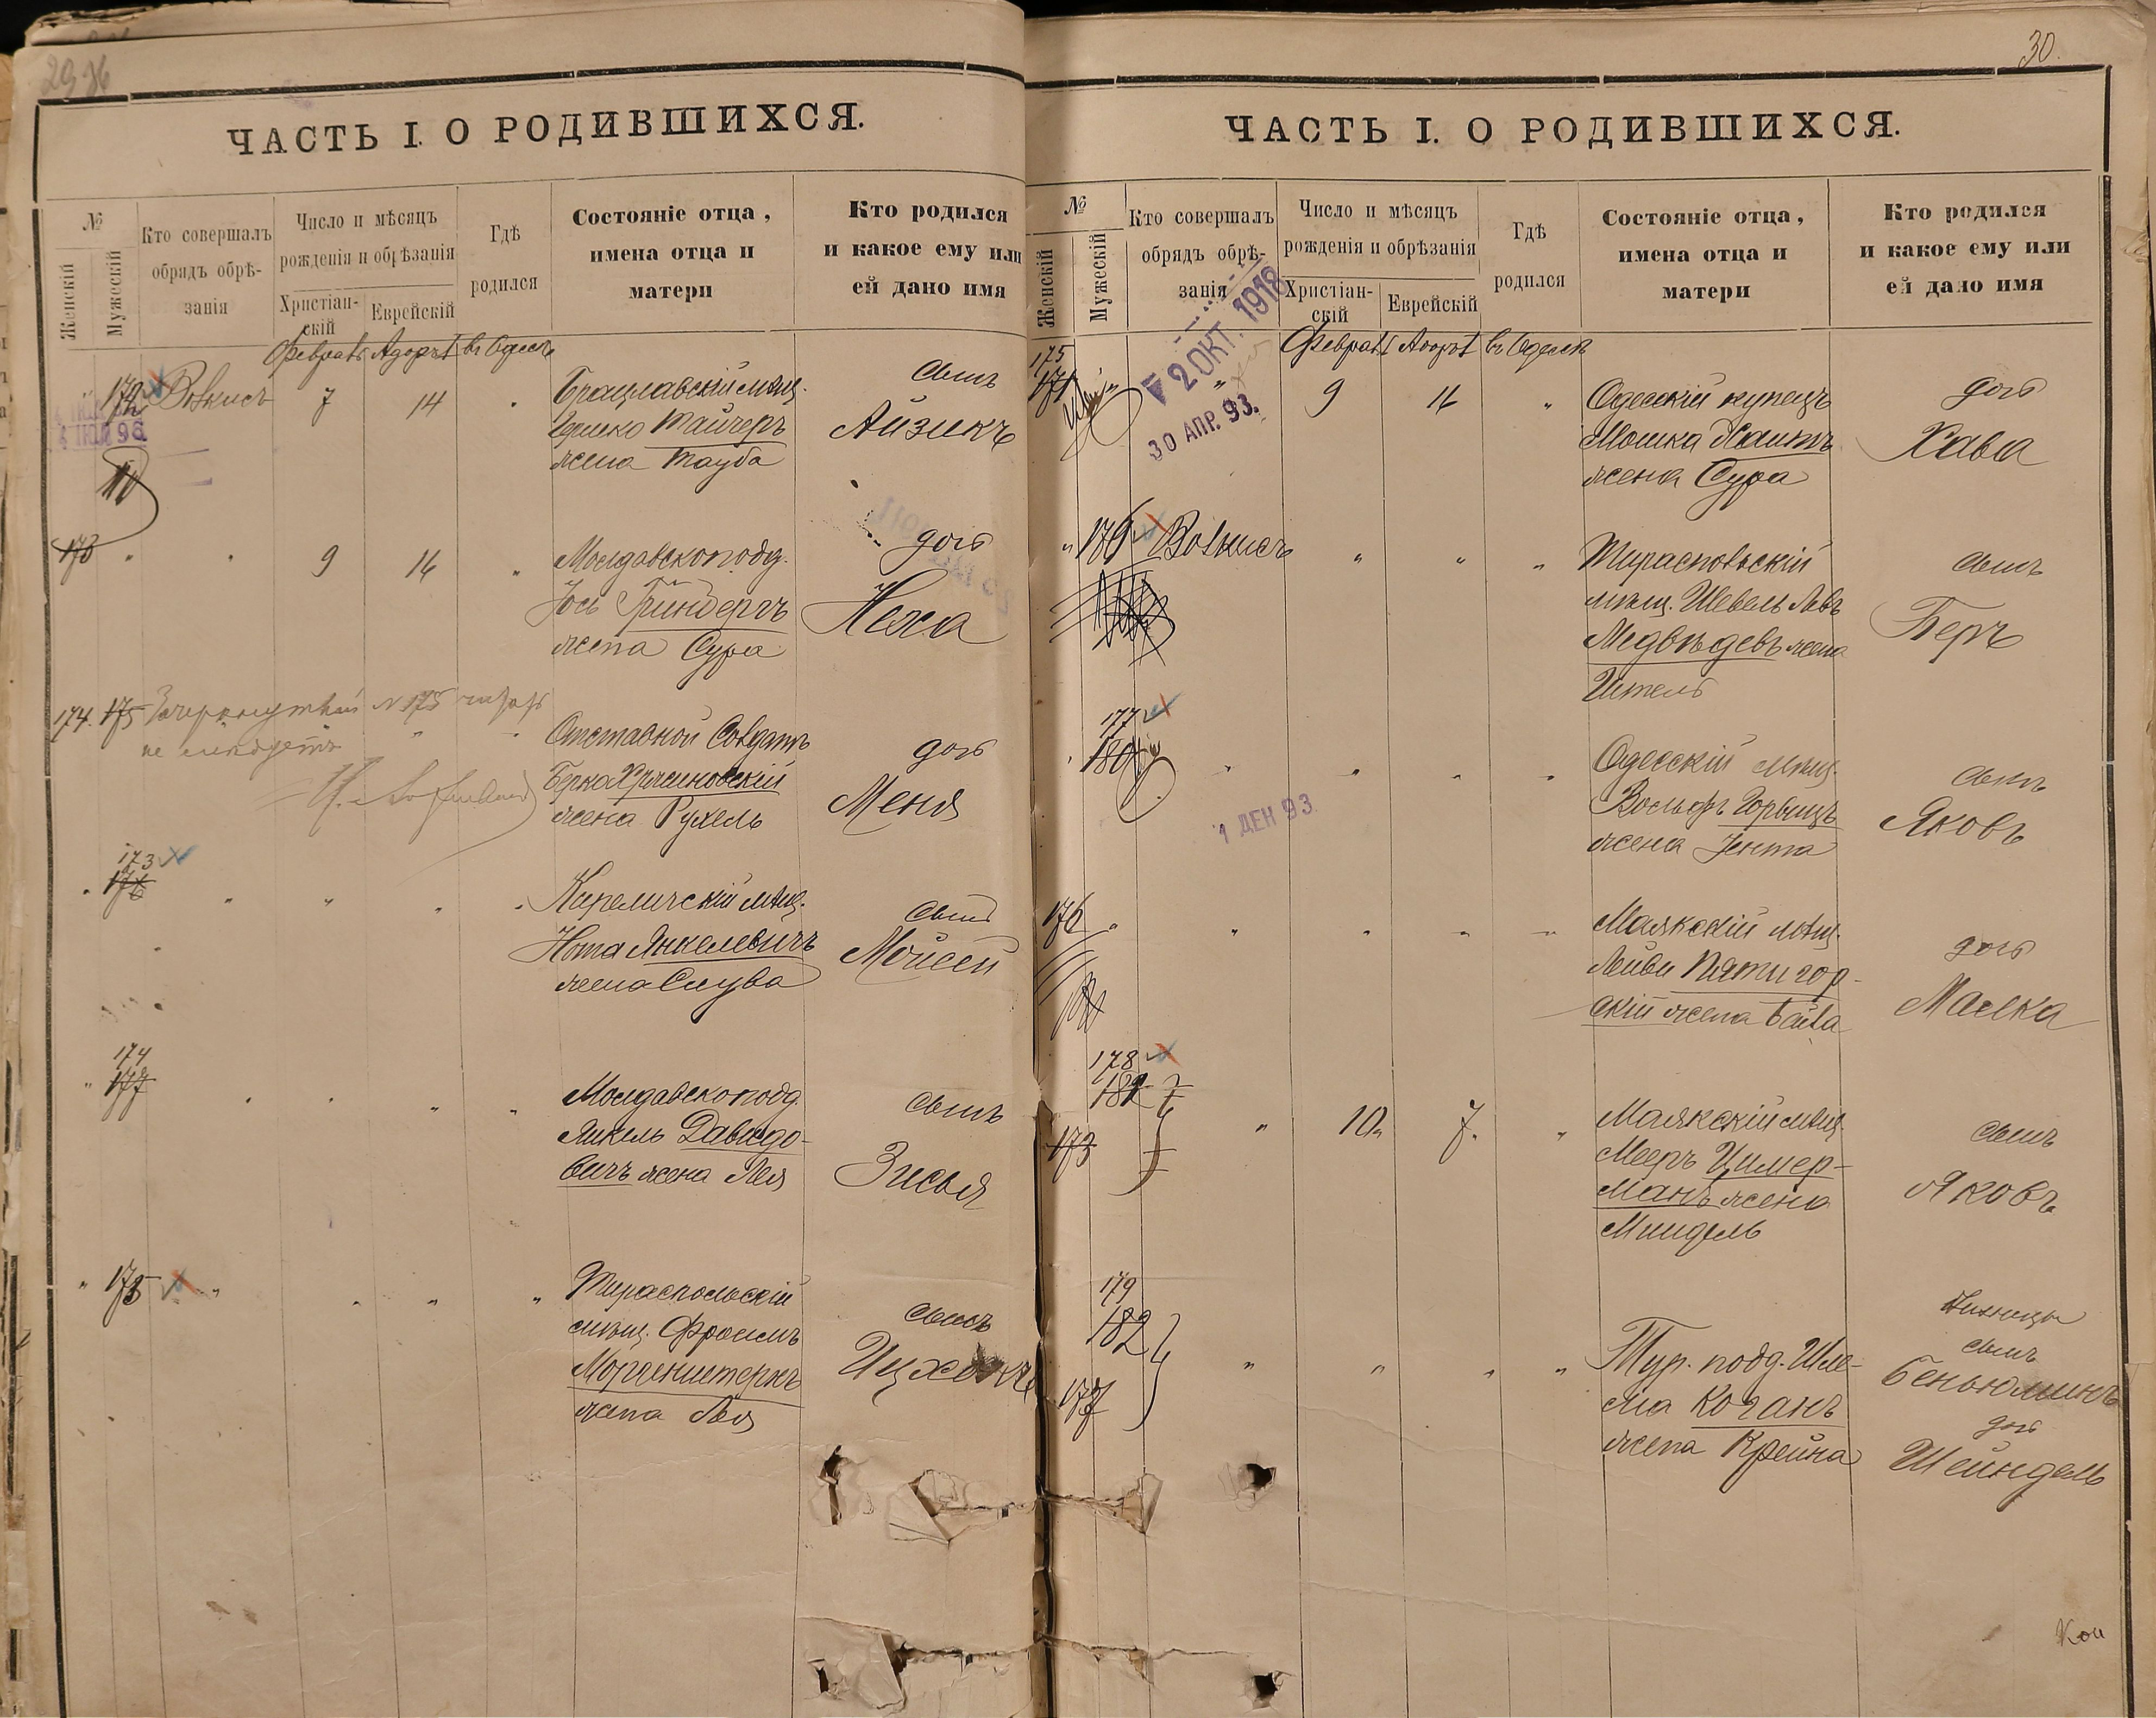 29
ЧАСТЬ I. О РОДИВШИХСЯ.
№
Женскій
Мужескій
Кто совершалъ
обрядъ обрѣ-
занія
Число и мѣсяцъ
рожденія и обрѣзанія
Христіан-
скій
Еврейскій
Гдѣ
родился
Состояніе отца,
имена отца и
матери
Кто родился
и какое ему или
ей дано имя
Февраль Адаръ I въ Одессѣ
" 172 Волкисъ 7 14 "
Брацлавскій мѣщ.
Гершко Тайчеръ
жена Тауба
сынъ
Айзикъ
173 " " 9 16 "
Молдавскоподд.
Іось Гринбергъ
жена Сура
дочь
Неха
174. 175 Зачеркнутый № 175 читать
не слѣдуетъ
Отставной Солдатъ
Берко Хрясиновскій
жена Рухель
дочь
Меня
173
176
Кореличскій мѣщ.
Нота Янкелевичъ
жена Слува
сынъ
Мойсей
174
177
Молдавскоподд.
Янкель Давидо-
вичъ жена Лея
сынъ
Зисья
" 175
Тираспольскій
мѣщ. Фроимъ
Моргенштернъ
жена Лея
сынъ
Ицхокъ
30.
ЧАСТЬ I. О РОДИВШИХСЯ.
№
Женскій
Мужескій
Кто совершалъ
обрядъ обрѣ-
занія
Число и мѣсяцъ
рожденія и обрѣзанія
Христіан-
скій
Еврейскій
Гдѣ
родился
Состояніе отца,
имена отца и
матери
Кто родился
и какое ему или
ей дано имя
2 ОКТ. 1918
30 АПР. 93.
Февраль Адаръ I въ Одессѣ
175
171 " 9 16 "
Одесскій купецъ
Мошка
жена Сура
дочь
Хава
" 176 Волкисъ " " "
Тираспольскій
мѣщ. Шевель Лейбъ
Медвѣдевъ жена
Ител
сынъ
Беръ
177
180
1 ДЕК 93
Одесскій мѣщ.
Вольфъ Горвицъ
жена Іента
сынъ
Яковъ
176
Маякскій мѣщ.
Лейви Пятигор-
скій жена Бейла
дочь
Малка
178
181
173
" 10 7. "
Маякскій мѣщ.
Мееръ Цимер-
манъ жена
Миндель
сынъ
Яковъ
179
182
177
Тур. подд. Шле-
ма Коганъ
жена Крейна
близнецы
сынъ
Беньюминъ
дочь
Шейндель
Кои